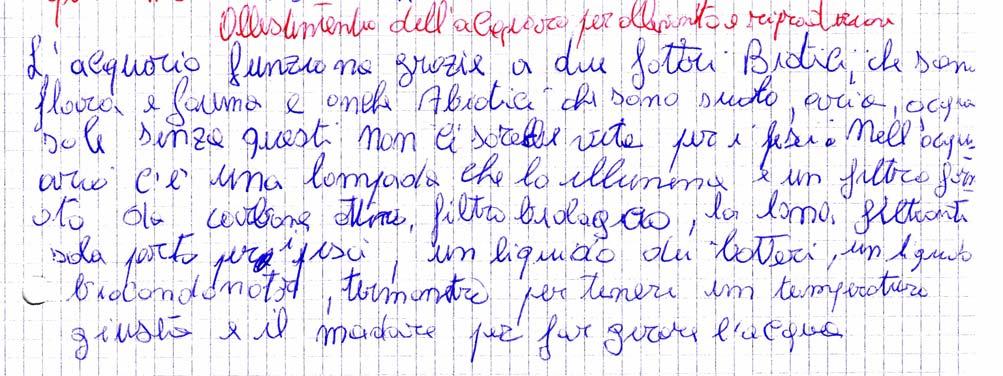 Allestimento dell'acquario per allevamento e riproduzione
L'acquario funziona grazie a due fattori Biotici, che sono
flora e fauna e anche Abiotici che sono suolo, aria, acqua
sole senza questi non ci sarebbe vita per i pesci. Nell'acqu-
ario c'è una lampada che lo illumina e un filtro form
ato da carbone attivo, filtro biologico, la lana filtrante
sala parto per i pesci, un liquido dei batteri, un liquido
biocondonator, termometro per tenere un temperatura
giusta e il madare per far girare l'acqua